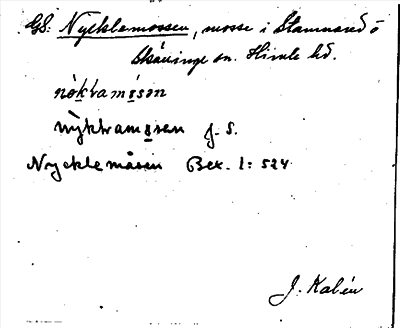 GS: Nycklemossen, mosse i Stamnared o
Skällinge sn. Himle hd.
nỳktramosen J. S.
Nycklemåsen Bex. 1: 524
J. Kalén